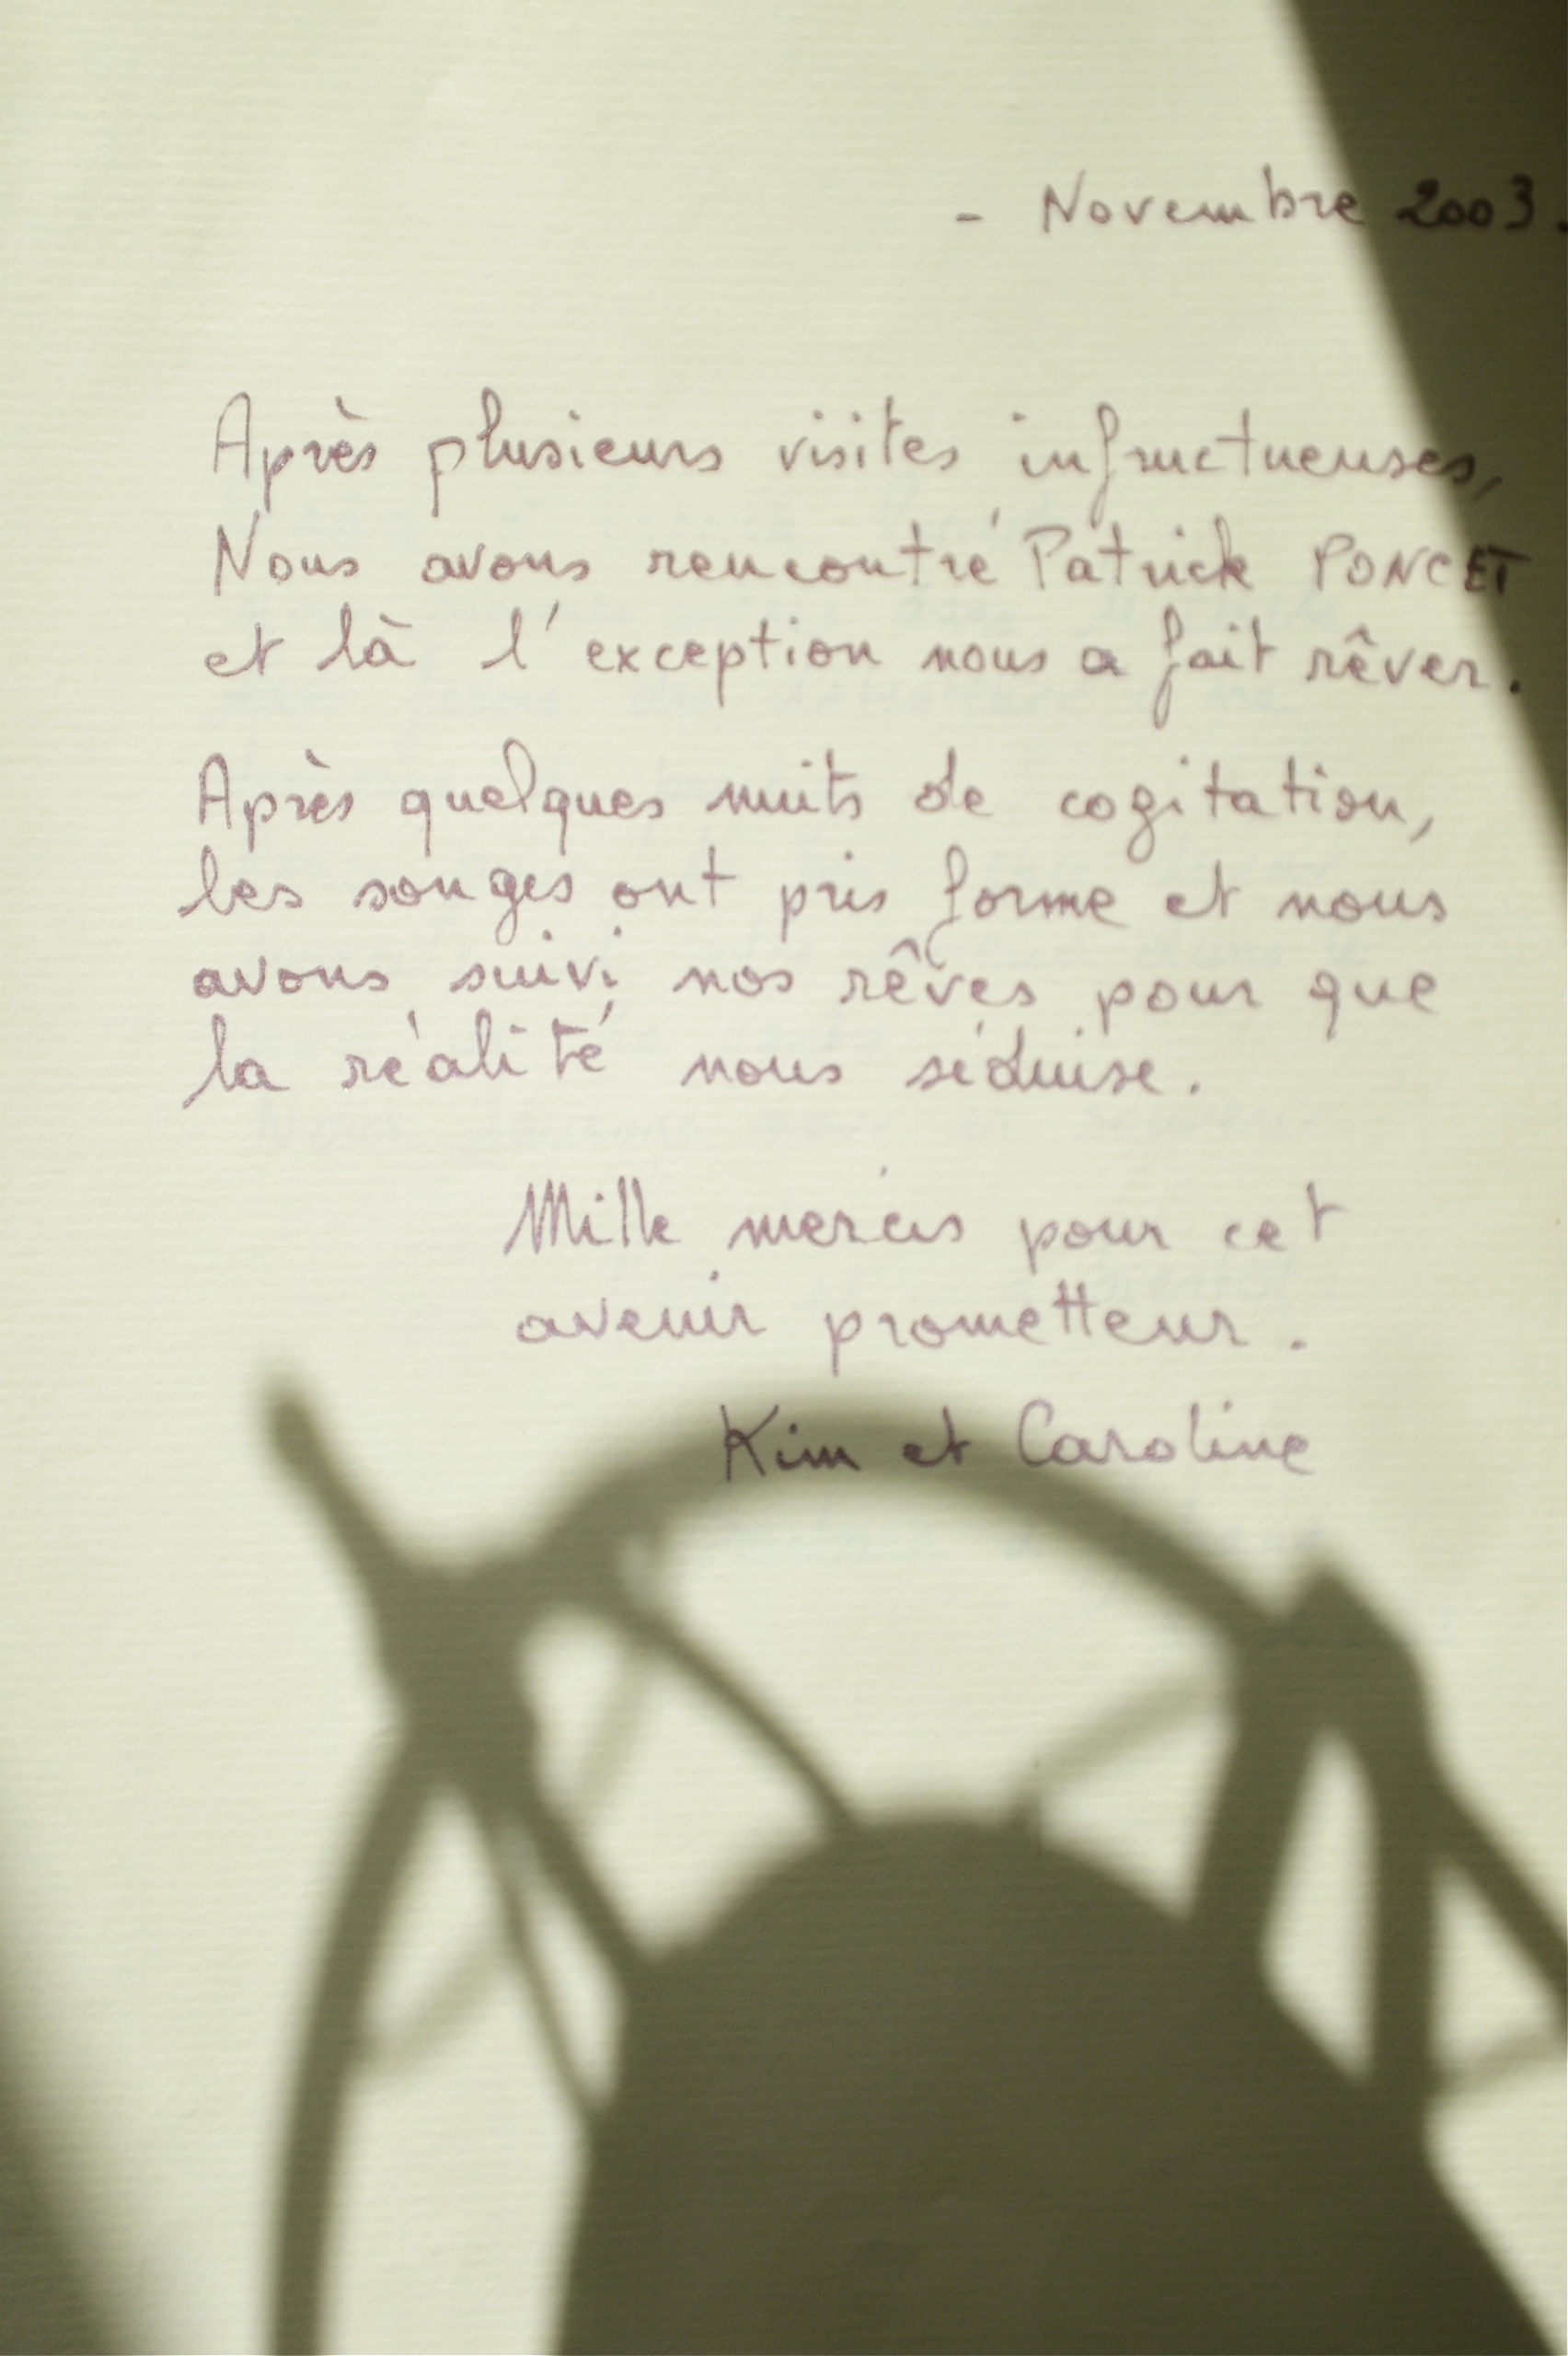 - Novembre 2003.
Après plusieurs visites infructueuses,
Nous avons rencontré Patrick PONCET
et là l'exception nous a fait rêver.
Après quelques nuits de cogitation,
les songes ont pris forme et nous
avons suivi nos rêves pour que
la réalité nous séduise.
Mille mercis pour cet
avenir prometteur.
Kim et Caroline